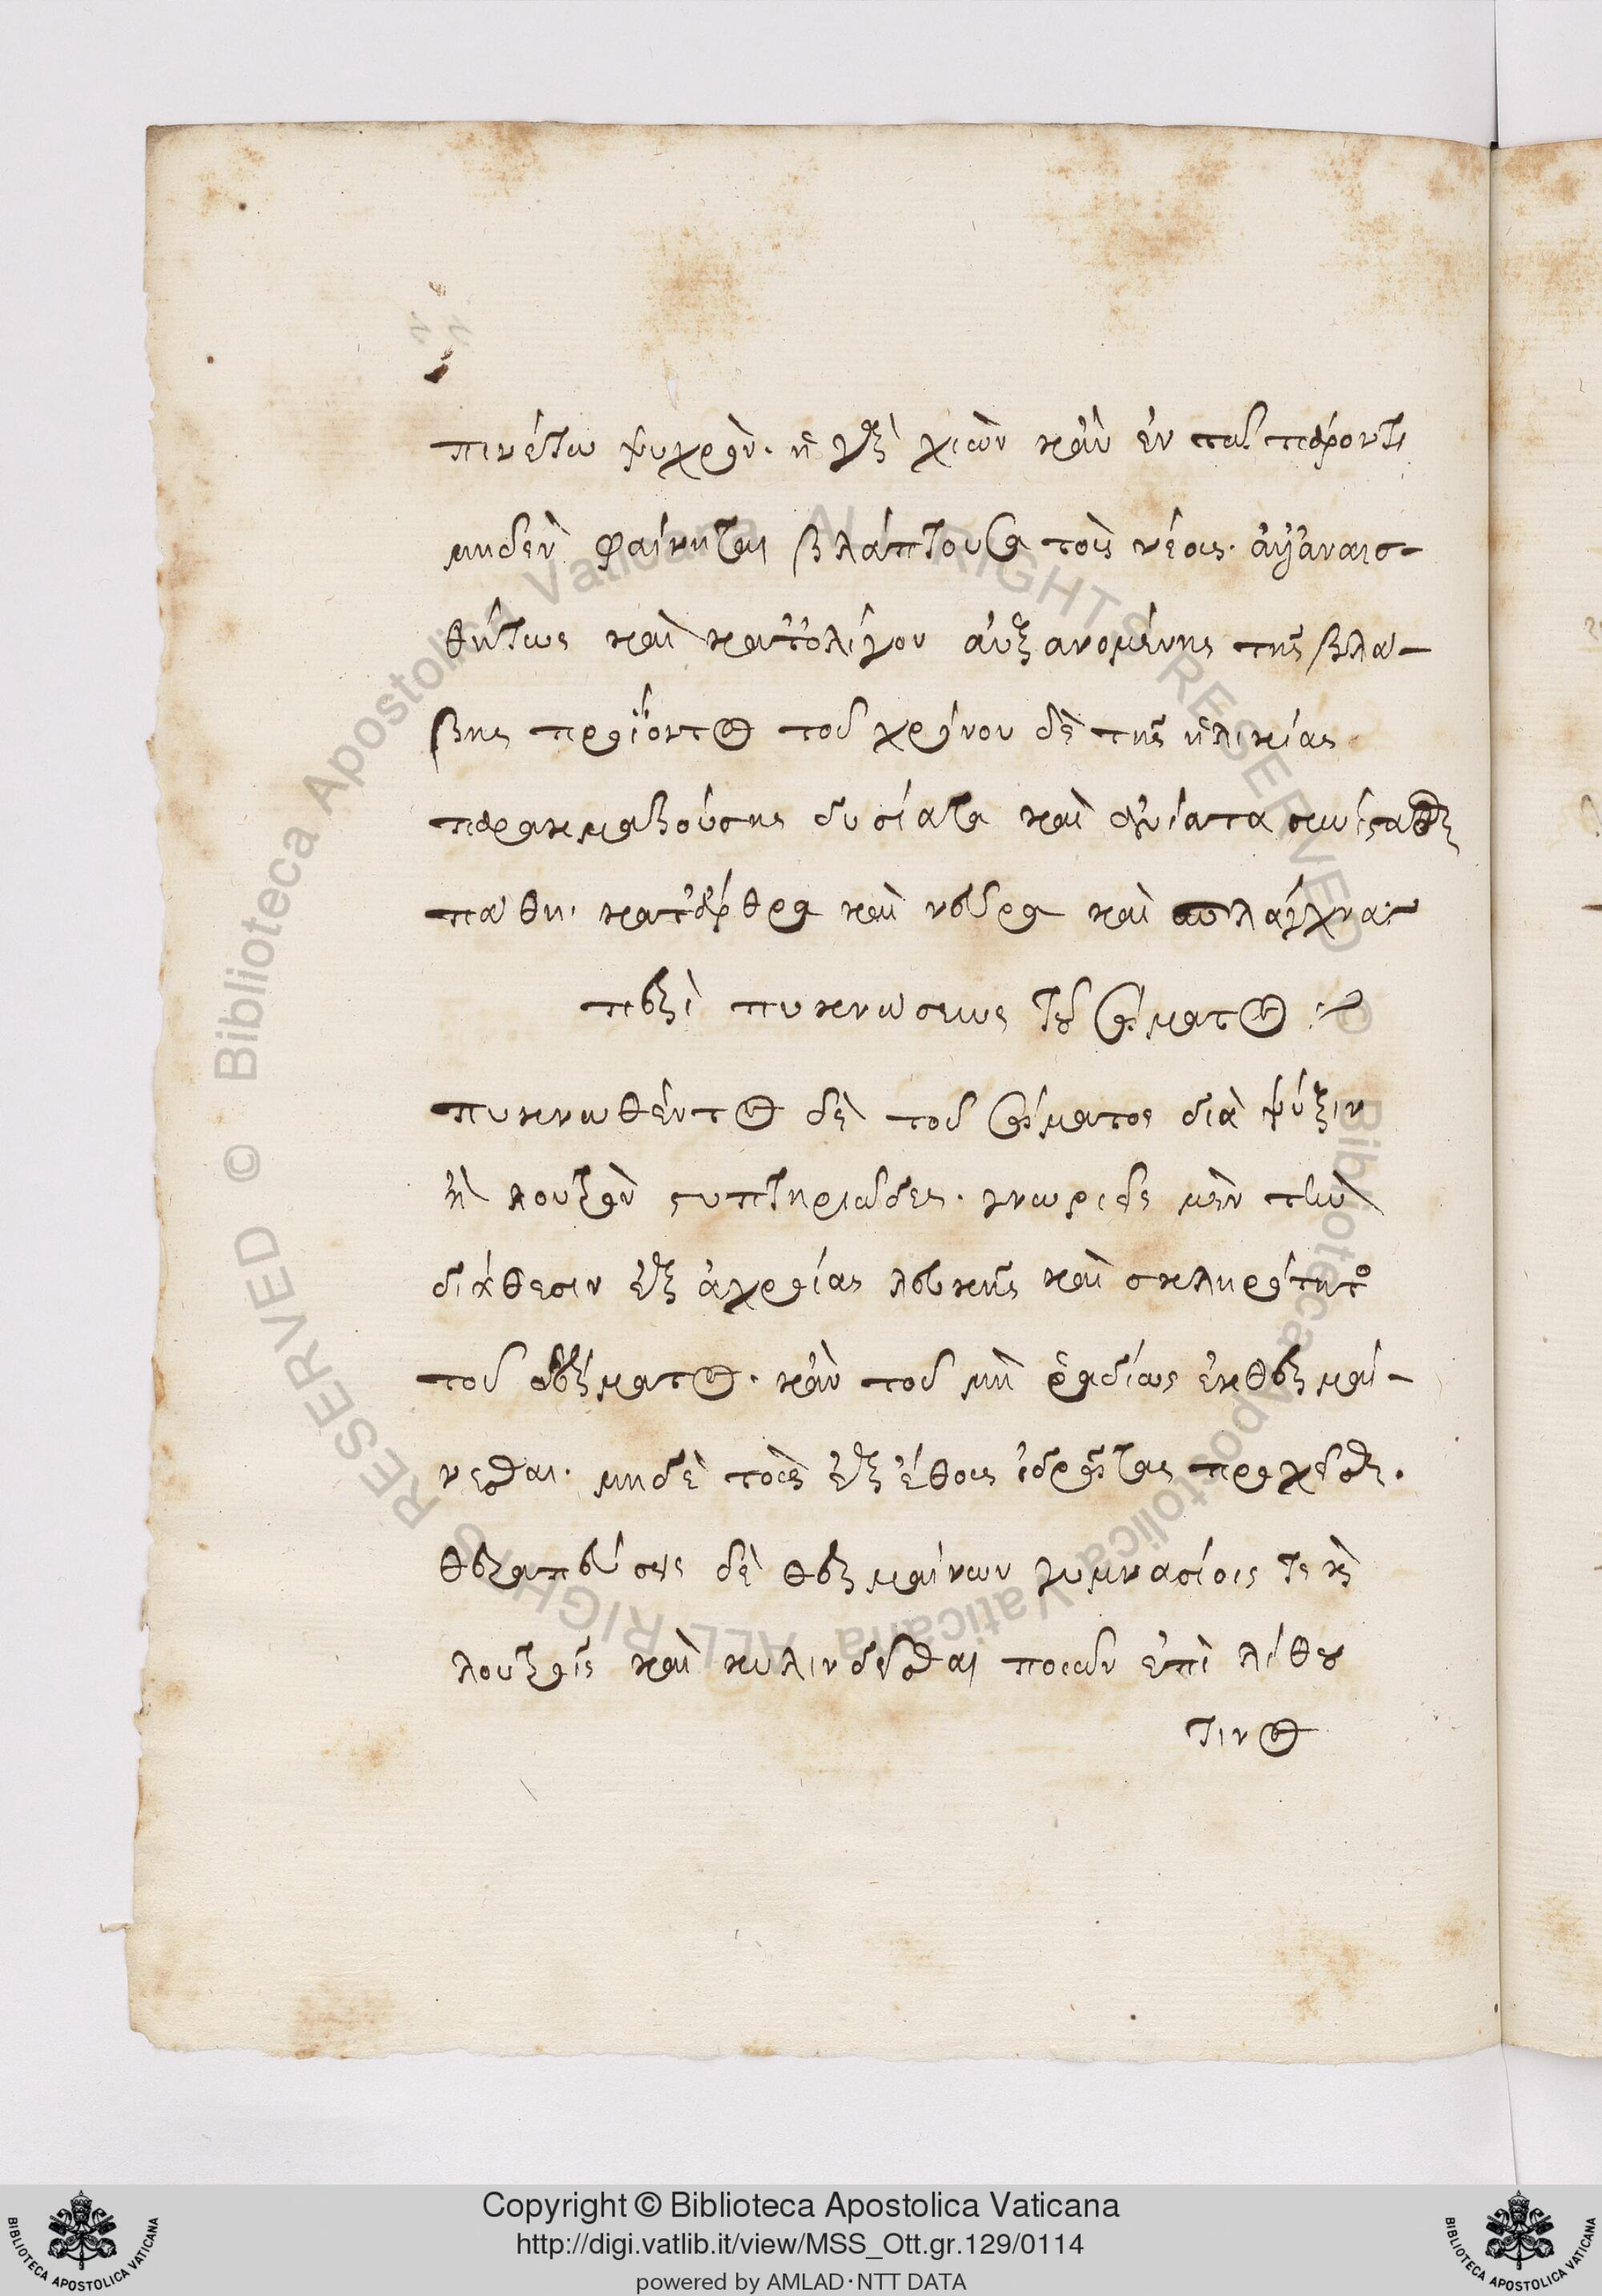 πινέτω ψυχρὸν· ἡ γὰρ χιὼν κἂν ἐν τῷ παρόντι
μηδὲν φαίνηται βλάπτουσα τοὺς νέους· ἀλλ' ἀναισ-
θήτως καὶ κατ' ὀλίγον αὐξανομένης τῆς βλά-
βης προϊόντος τοῦ χρόνου δὲ τῆς ἡλικίας
παρακμαζούσης δυσίατα καὶ ἀνίατα συνίσταται
πάθη· κατ' ἄρθρα καὶ νεῦρα καὶ σπλάγχνα:
περὶ πυκνώσεως τοῦ σώματος :
πυκνωθέντος δὲ τοῦ σώματος διὰ ψύξιν
ἢ λουτρὸν στυπτηριῶδες· γνωριεῖς μὲν τὴν
διάθεσιν ἐξ ἀχροίας λευκῆς καὶ σκληρότητος
τοῦ δέρματος· κἂν τοῦ μὴ ῥᾳδίως ἐκθερμαί-
νεσθαι· μηδὲ τοὺς ἐξ ἔθους ἱδρῶτας προχεῖσθαι.
θεραπεύσεις δὲ θερμαίνων γυμνασίοις τε καὶ
λουτροῖς καὶ κυλινδεῖσθαι ποιῶν ἐπὶ λίθου
τινος
Copyright © Biblioteca Apostolica Vaticana
http://digi.vatlib.it/view/MSS_Ott.gr.129/0114
powered by AMLAD·NTT DATA
© Biblioteca Apostolica Vaticana ALL RIGHTS RESERVED
© Biblioteca Apostolica Vaticana ALL RIGHTS RESERVED
BIBLIOTECA APOSTOLICA VATICANA
BIBLIOTECA APOSTOLICA VATICANA